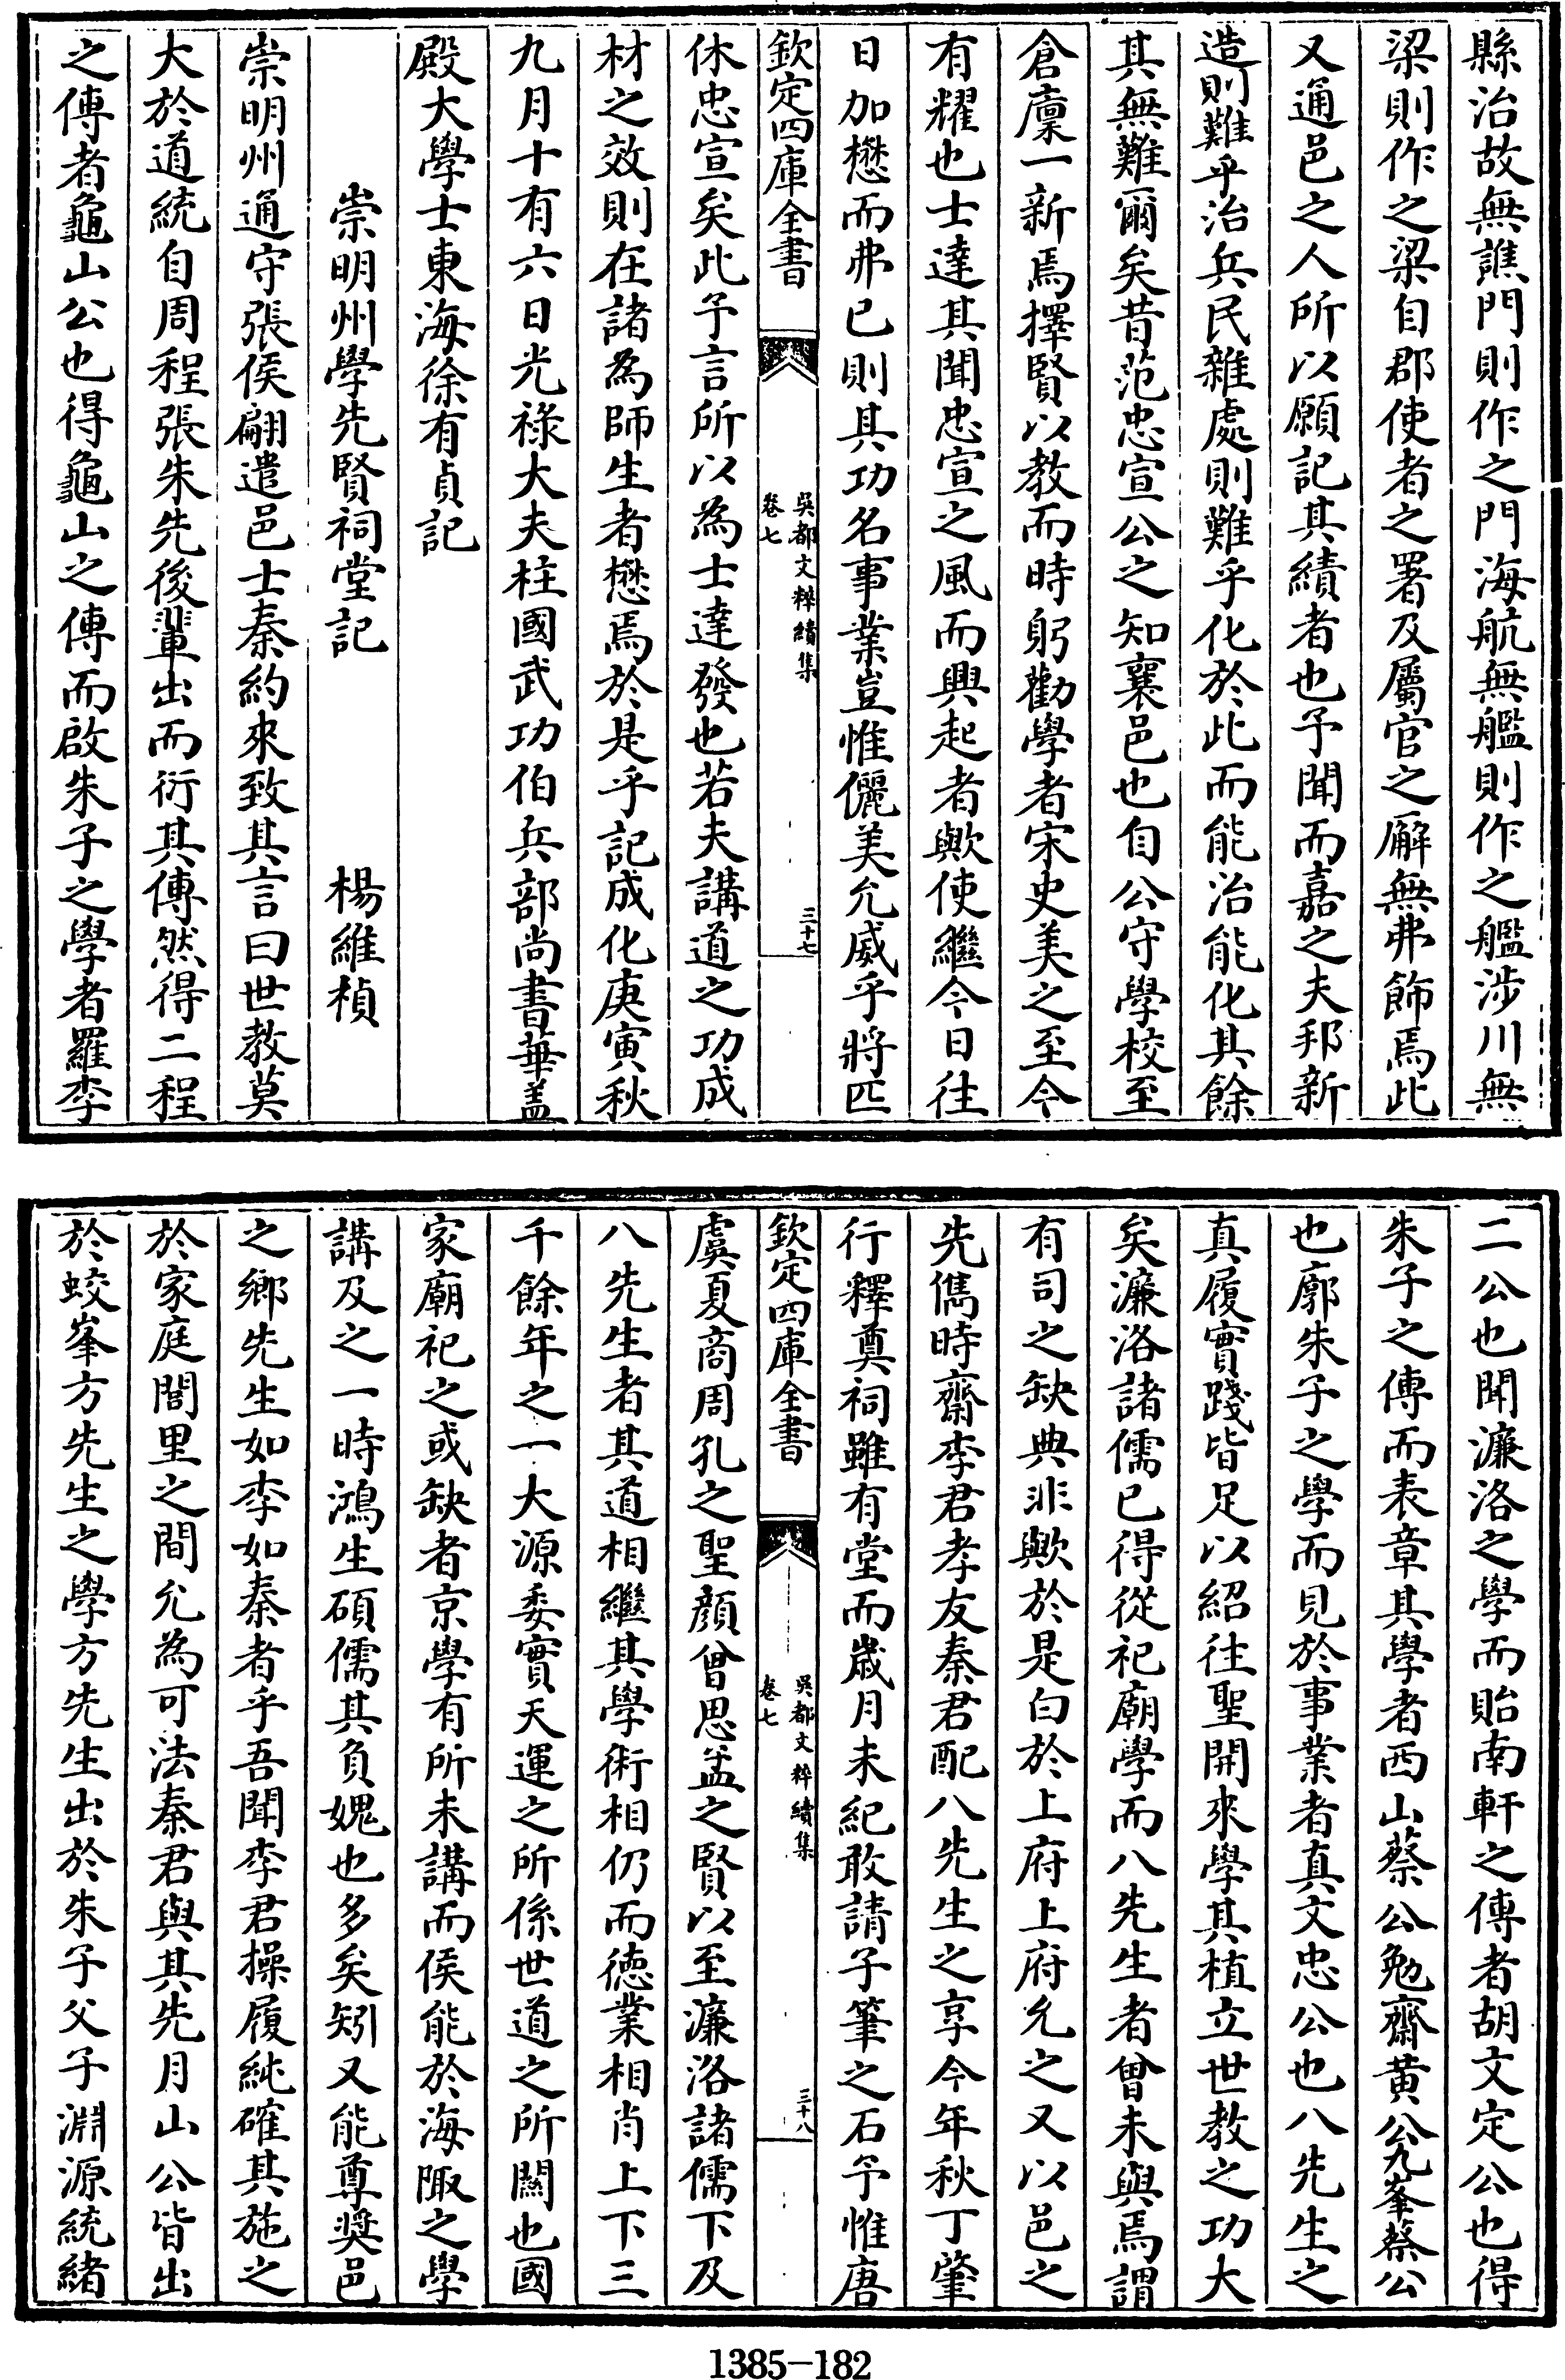 縣治故無譙門則作之門海航無艦則作之艦涉川無
梁則作之梁自郡使者之署及屬官之廨無弗飾焉此
又通邑之人所以願記其績者也予聞而嘉之夫邦新
造則難乎治兵民雜處則難乎化於此而能治能化其餘
其無難爾矣昔范忠宣公之知襄邑也自公守學校至
倉廩一新焉擇賢以教而時躬勸學者宋史美之至今
有耀也士達其聞忠宣之風而興起者歟使繼今日往
日加懋而弗已則其功名事業豈惟儷美允威乎將匹
欽定四庫全書
吳都文粹續集
卷七
三十七
休忠宣矣此予言所以為士達發也若夫講道之功成
材之效則在諸為師生者懋焉於是乎記成化庚寅秋
九月十有六日光祿大夫柱國武功伯兵部尚書華蓋
殿大學士東海徐有貞記
崇明州學先賢祠堂記 楊維楨
崇明州通守張侯翩遣邑士秦約來致其言曰世教莫
大於道統自周程張朱先後輩出而衍其傳然得二程
之傳者龜山公也得龜山之傳而啟朱子之學者羅李
二公也聞濂洛之學而貽南軒之傳者胡文定公也得
朱子之傳而表章其學者西山蔡公勉齋黃公九峯蔡公
也廓朱子之學而見於事業者真文忠公也八先生之
真履實踐皆足以紹往聖開來學其植立世教之功大
矣濂洛諸儒已得從祀廟學而八先生者曾未與焉謂
有司之缺典非歟於是白於上府上府允之又以邑之
先儁時齋李君孝友秦君配八先生之享今年秋丁肇
行釋奠祠雖有堂而歲月未紀敢請子筆之石予惟唐
欽定四庫全書
吳都文粹續集
卷七
三十八
虞夏商周孔之聖顏曾思孟之賢以至濂洛諸儒下及
八先生者其道相繼其學術相仍而德業相肖上下三
千餘年之一大源委實天運之所係世道之所關也國
家廟祀之或缺者京學有所未講而侯能於海陬之學
講及之一時鴻生碩儒其負媿也多矣矧又能尊奬邑
之鄉先生如李如秦者乎吾聞李君操履純確其施之
於家庭閭里之間允為可法秦君與其先月山公皆出
於蛟峯方先生之學方先生出於朱子父子淵源統緒
1385-182